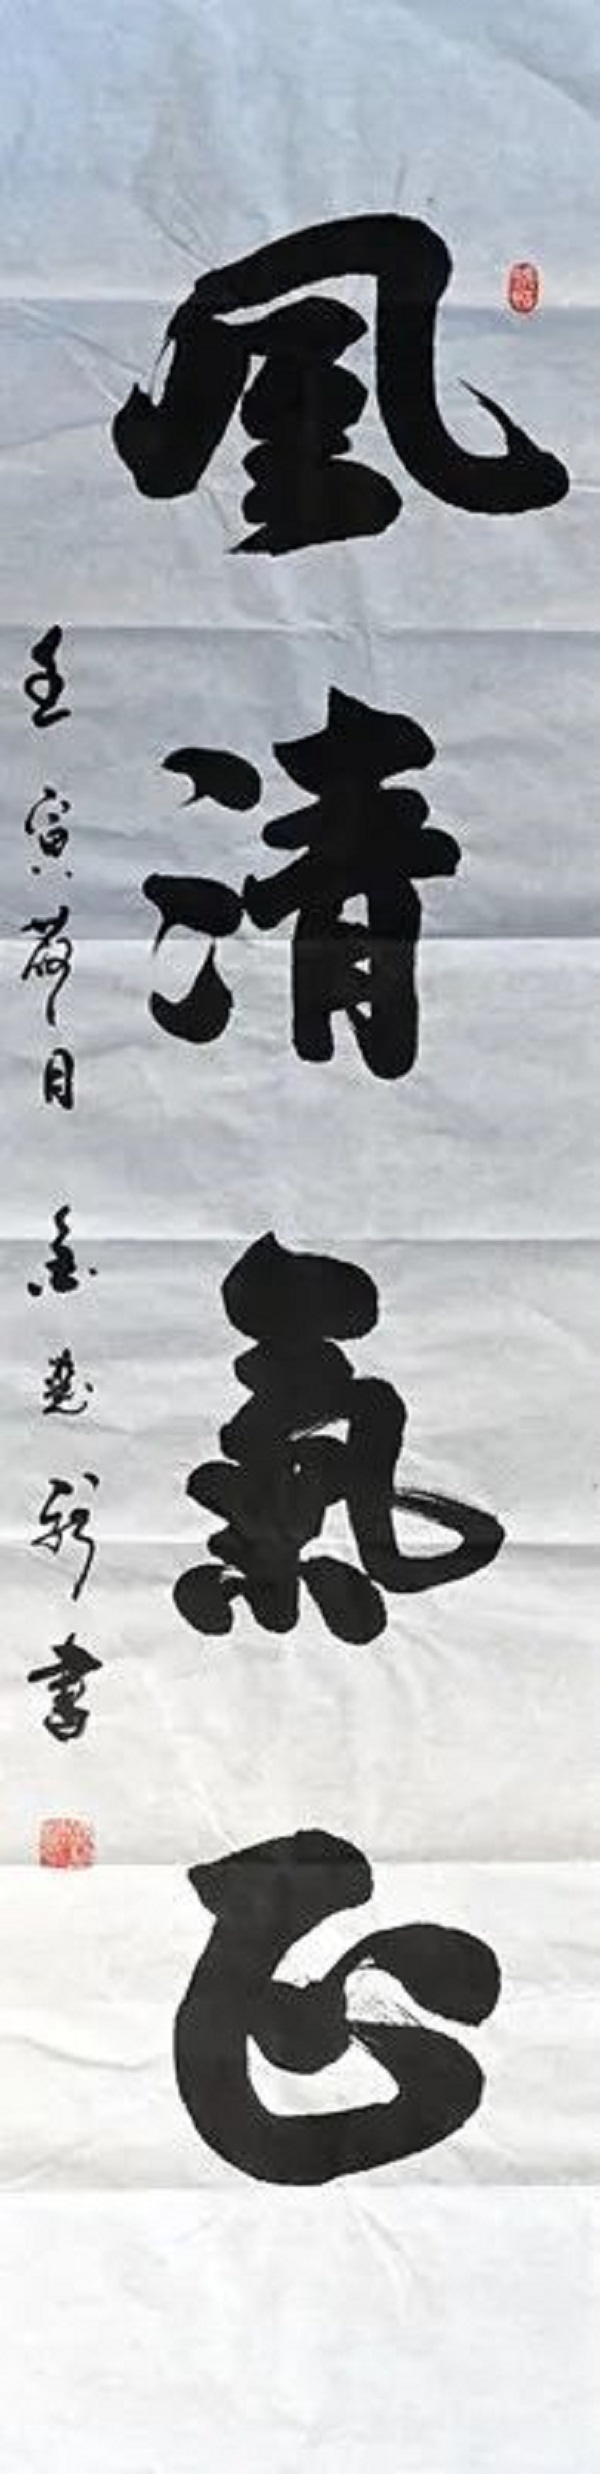 風清氣正
壬寅荷月 書